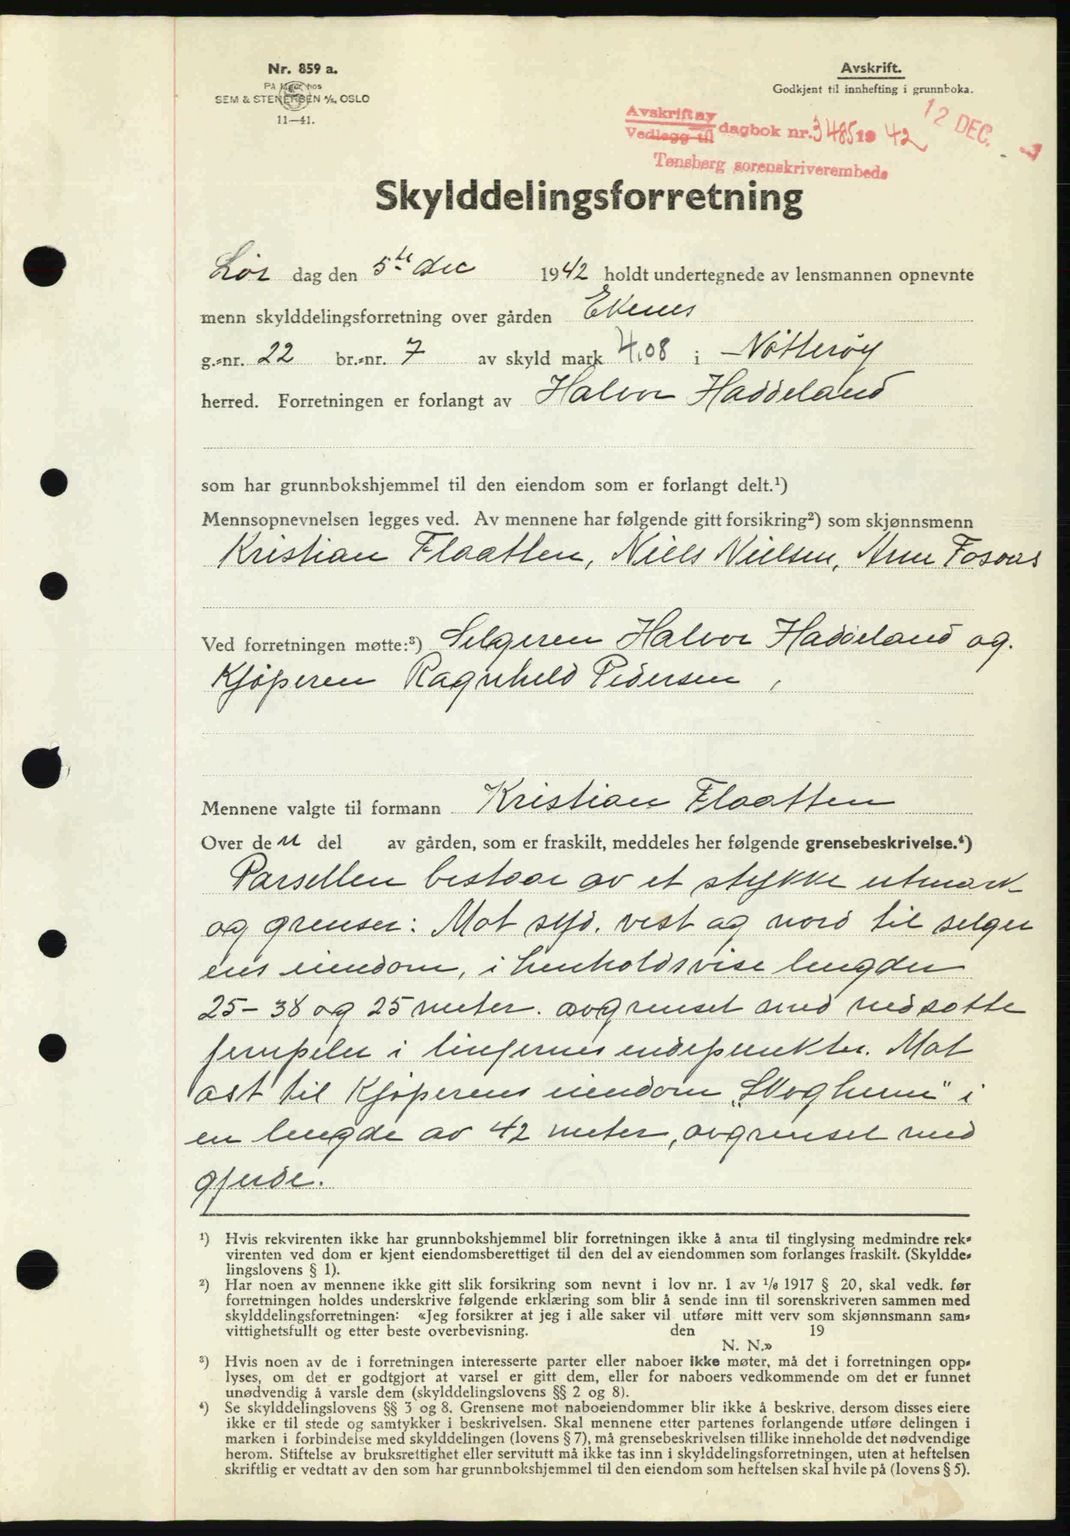 Nr. 859 a.
På lager hos
SEM & STENERSEN A/S, OSLO
11—41.
Avskrift.
Godkjent til innhefting i grunnboka.
Avskrift av
Vedlegg til dagbok nr. 3485 1942
12 DEC.
Tønsberg sorenskriverembede
Skylddelingsforretning
Lør dag den 5te dec 1942 holdt undertegnede av lensmannen opnevnte
menn skylddelingsforretning over gården Ekenes
g.-nr. 22 br.-nr. 7 av skyld mark 4,08 i Nøtterøy
herred. Forretningen er forlangt av Halvor Haddeland
som har grunnbokshjemmel til den eiendom som er forlangt delt.¹)
Mennsopnevnelsen legges ved. Av mennene har følgende gitt forsikring²) som skjønnsmenn
Kristian Flaatten, Niels Nielsen, Arne Fosaas
Ved forretningen møtte:³) Selgeren Halvor Haddeland og
Kjøperen Ragnhild Pedersen,
Mennene valgte til formann Kristian Flaatten
Over den del av gården, som er fraskilt, meddeles her følgende grensebeskrivelse.⁴)
Parsellen bestaar av et stykke utmark
og grenser: Mot syd, vest og nord til selger
ens eiendom, i henholdsvise lengder
25 - 38 og 25 meter. avgrenset med nedsatte
jernpeler i linjernes endepunkter. Mot
øst til Kjøperens eiendom „Skoghem" i
en lengde av 42 meter, avgrenset med
gjerde.
¹) Hvis rekvirenten ikke har grunnbokshjemmel blir forretningen ikke å anta til tinglysing medmindre rek-
virenten ved dom er kjent eiendomsberettiget til den del av eiendommen som forlanges fraskilt. (Skyldde-
lingslovens § 1).
²) Har noen av mennene ikke gitt slik forsikring som nevnt i lov nr. 1 av 1/6 1917 § 20, skal vedk. før
forretningen holdes underskrive følgende erklæring som blir å sende inn til sorenskriveren sammen med
skylddelingsforretningen: «Jeg forsikrer at jeg i alle saker vil utføre mitt verv som skjønnsmann sam-
vittighetsfullt og etter beste overbevisning. den 19
N. N.»
³) Hvis noen av de i forretningen interesserte parter eller naboer ikke møter, må det i forretningen opp-
lyses, om det er godtgjort at varsel er gitt dem, eller for naboers vedkommende om det er funnet
unødvendig å varsle dem (skylddelingslovens §§ 2 og 8).
⁴) Se skylddelingslovens §§ 3 og 8. Grensene mot naboeiendommer blir ikke å beskrive, dersom disses eiere
ikke er til stede og samtykker i beskrivelsen. Skal mennene etter partenes forlangende utføre delingen i
marken i forbindelse med skylddelingen (lovens § 7), må grensebeskrivelsen tillike inneholde det nødvendige
herom. Stiftelse av bruksrettighet eller servitutt må ikke tas inn i skylddelingsforretningen, uten at heftelsen
skriftlig er vedtatt av den som har grunnbokshjemmel til den eiendom som heftelsen skal hvile på (lovens § 5).